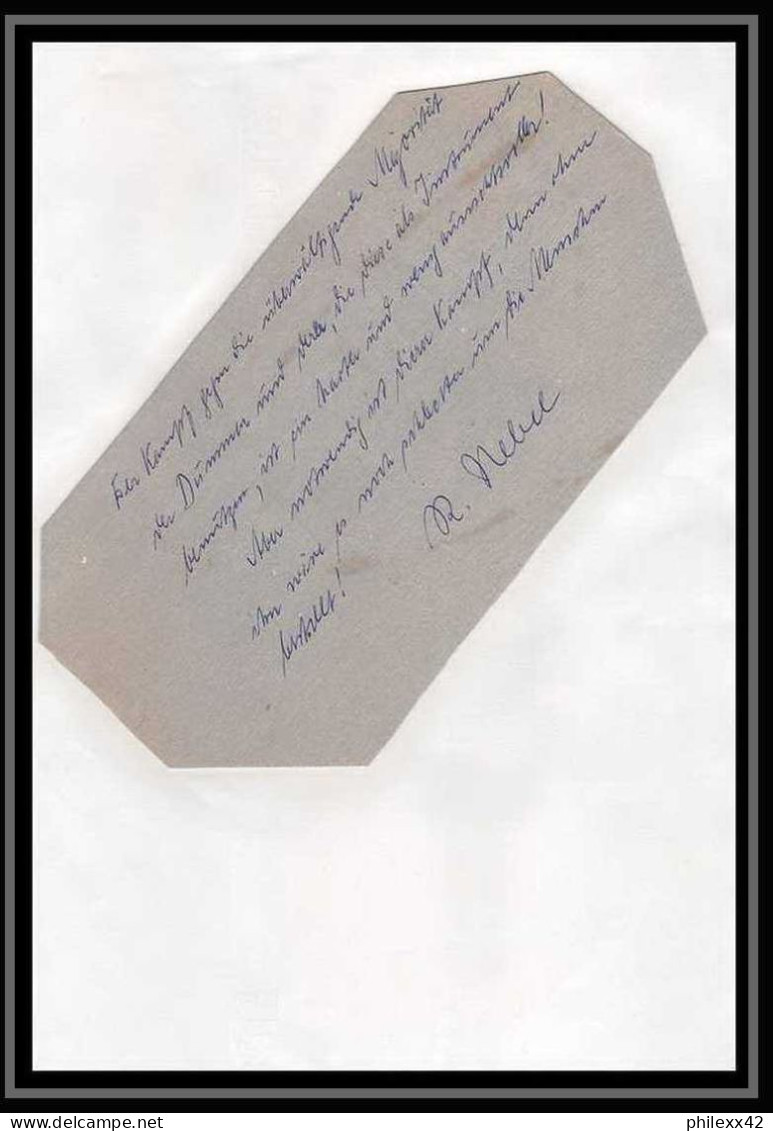 Der Kampf gegen die überwältigende Majorität
der Dummen und derer, die diese als Instrument
benützen, ist ein harter und wenig aussichtsvoller!
Aber notwendig ist dieser Kampf, denn ohne
ihn wäre es noch schlechter um die Menschen
bestellt!
R. Nebel
philexx42